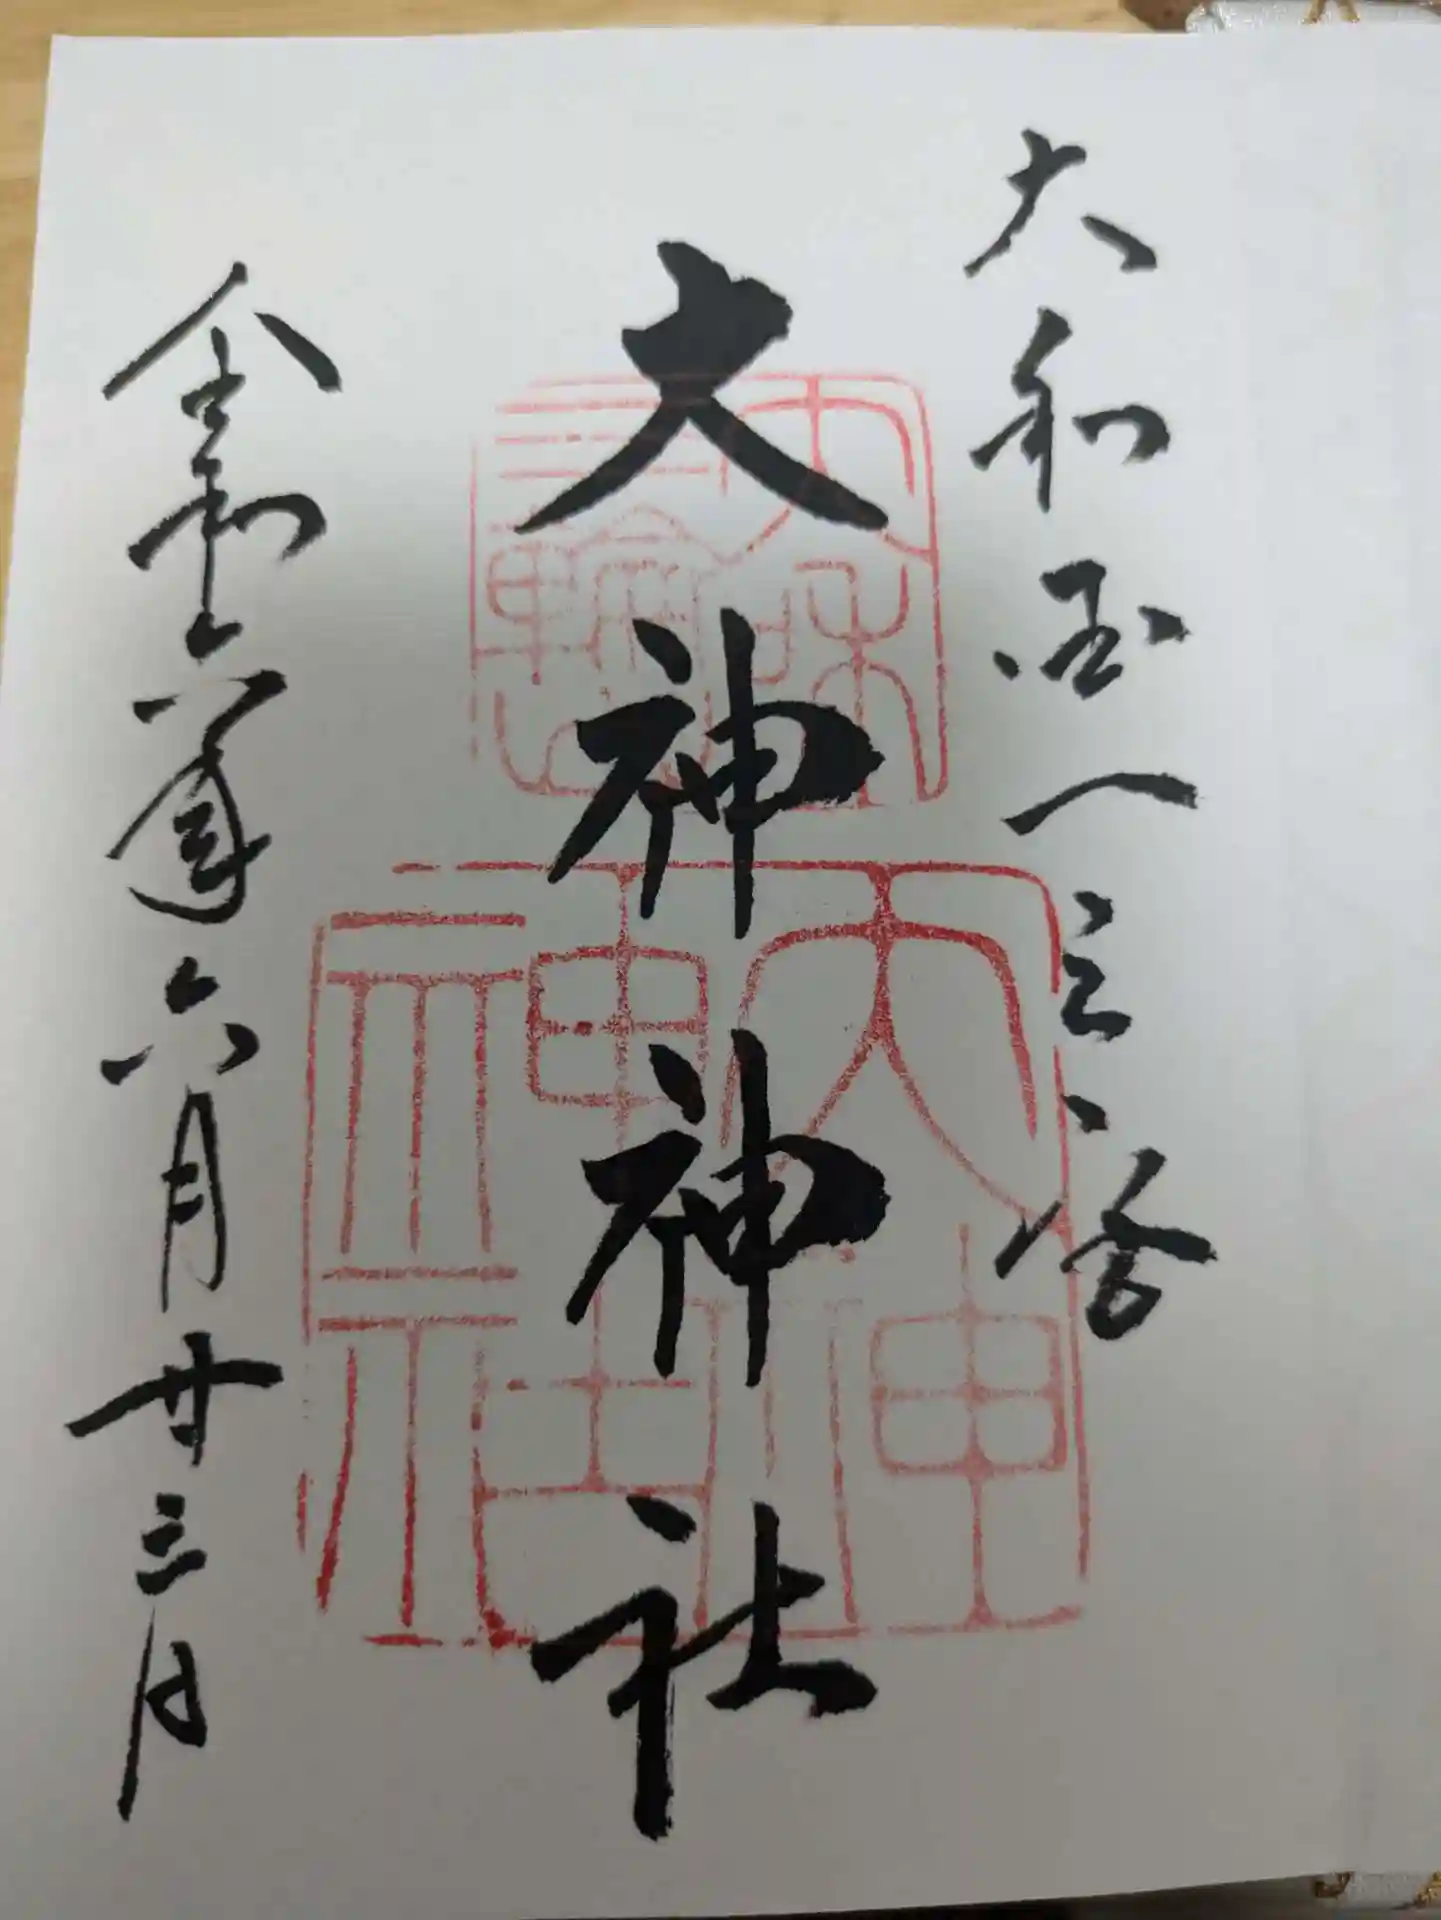 大和国一之宮
大神神社
令和六年六月廿三日
大和
三輪山
大神
神社